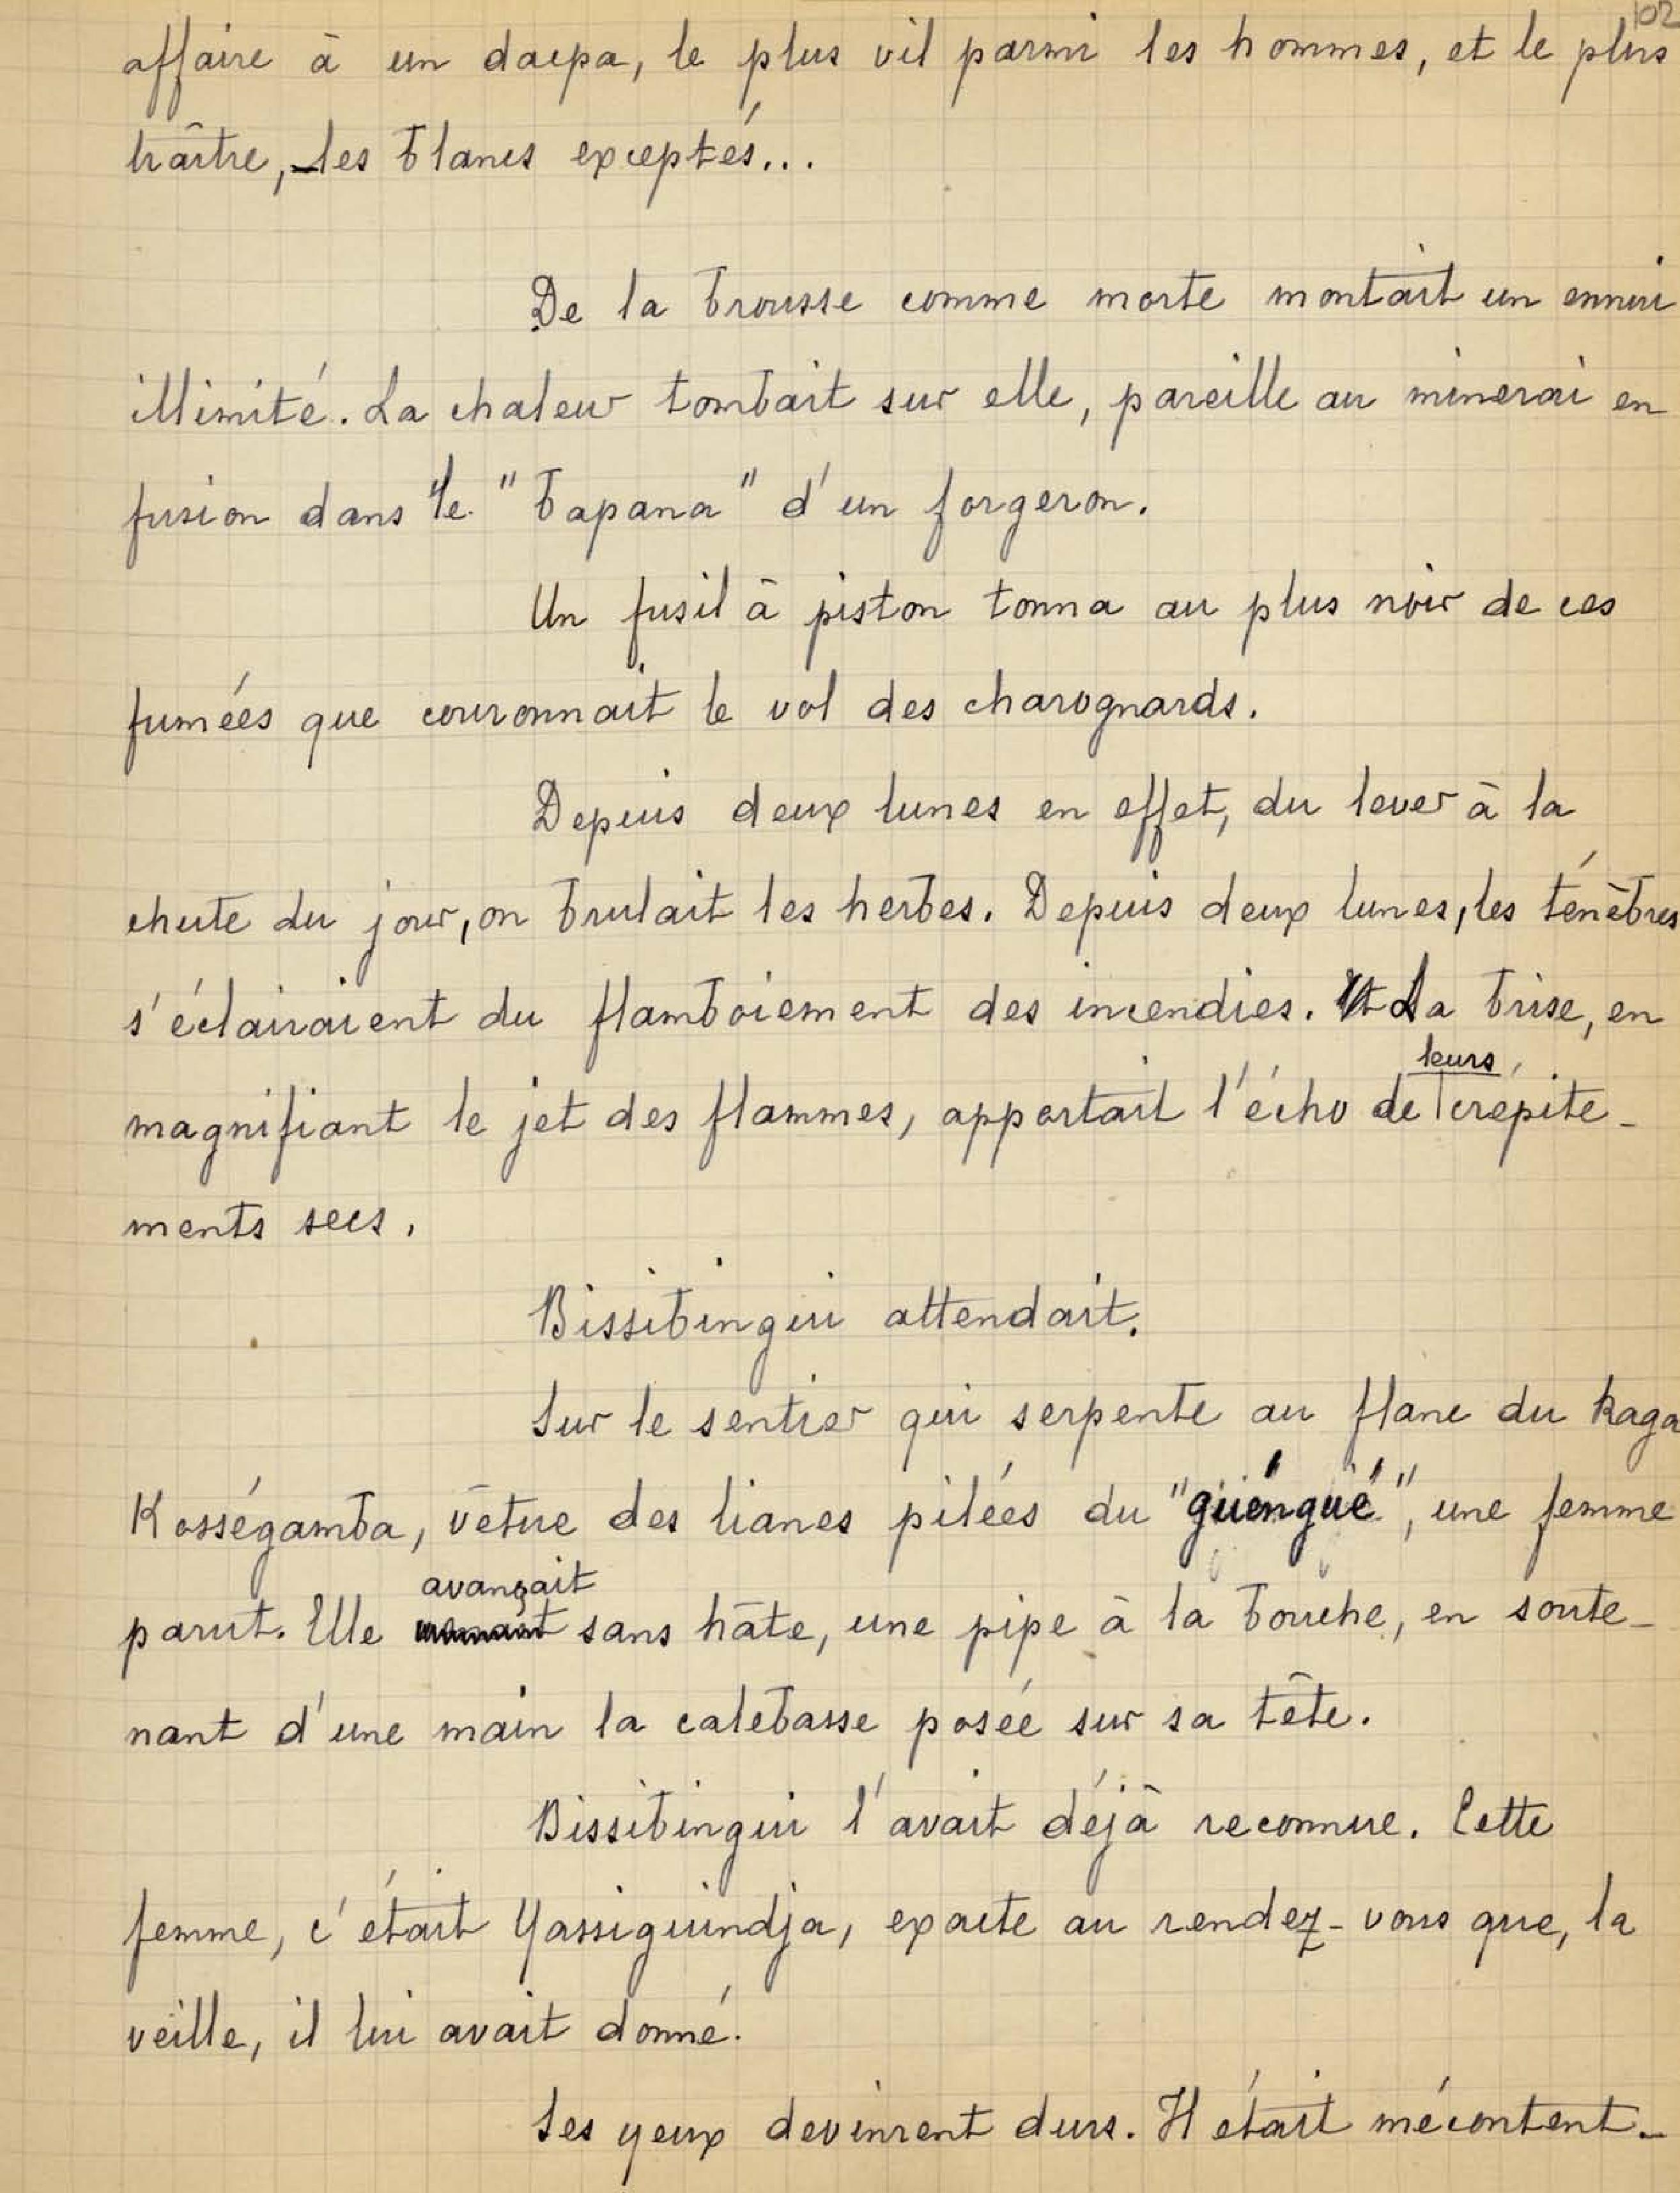 102
affaire à un dacpa, le plus vil parmi les hommes, et le plus
traître, les blancs exceptés...
De la brousse comme morte montait un ennui
illimité. La chaleur tombait sur elle, pareille au minerai en
fusion dans le "bapana" d'un forgeron.
Un fusil à piston tonna au plus noir de ces
fumées que couronnait le vol des charognards.
Depuis deux lunes en effet, du lever à la
chute du jour, on brulait les herbes. Depuis deux lunes, les ténèbres
s'éclairaient du flamboiement des incendies. La brise, en
magnifiant le jet des flammes, apportait l'écho de leurs crépite-
ments secs.
Bissibingui attendait.
Sur le sentier qui serpente au flanc du kaga
Kosségamba, vêtue des lianes pilées du "güéngüé", une femme
parut. Elle avançait sans hâte, une pipe à la bouche, en soute-
nant d'une main la calebasse posée sur sa tête.
Bissibingui l'avait déjà reconnue. Cette
femme, c'était Yassiguindja, exacte au rendez-vous que, la
veille, il lui avait donné.
Ses yeux devinrent durs. Il était mécontent.